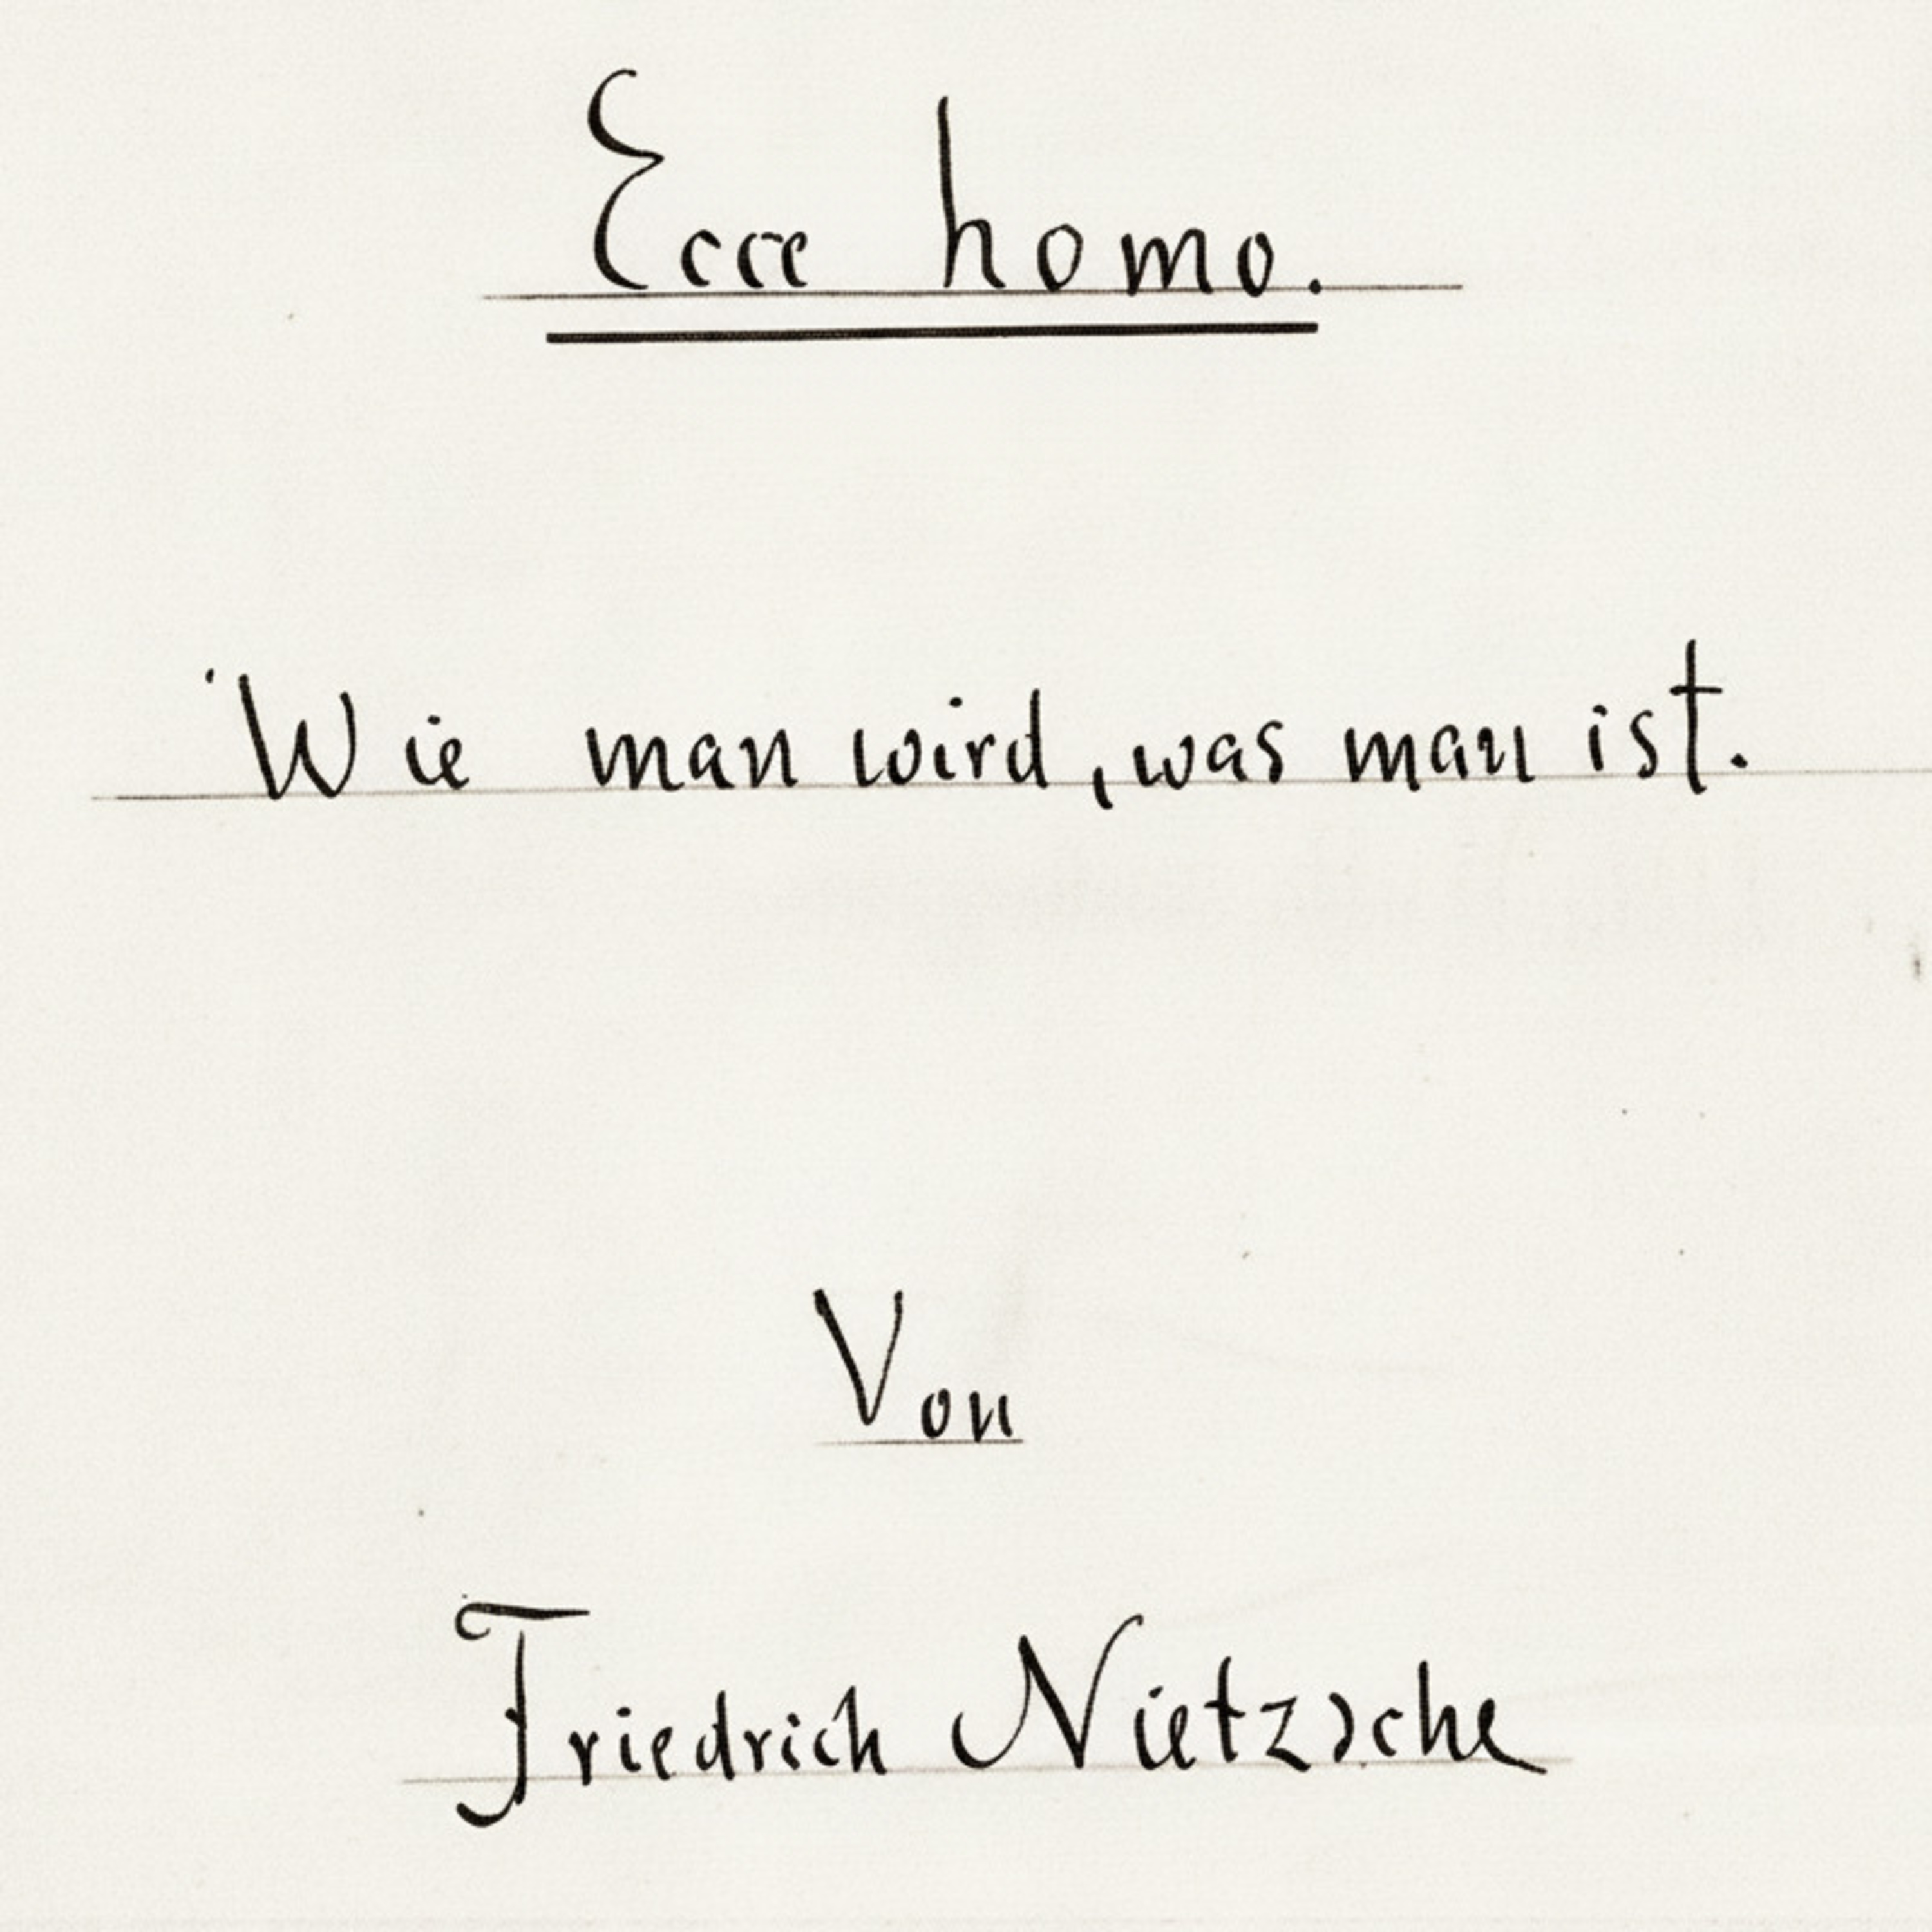 Ecce homo.
Wie man wird, was man ist.
Von
Friedrich Nietzsche